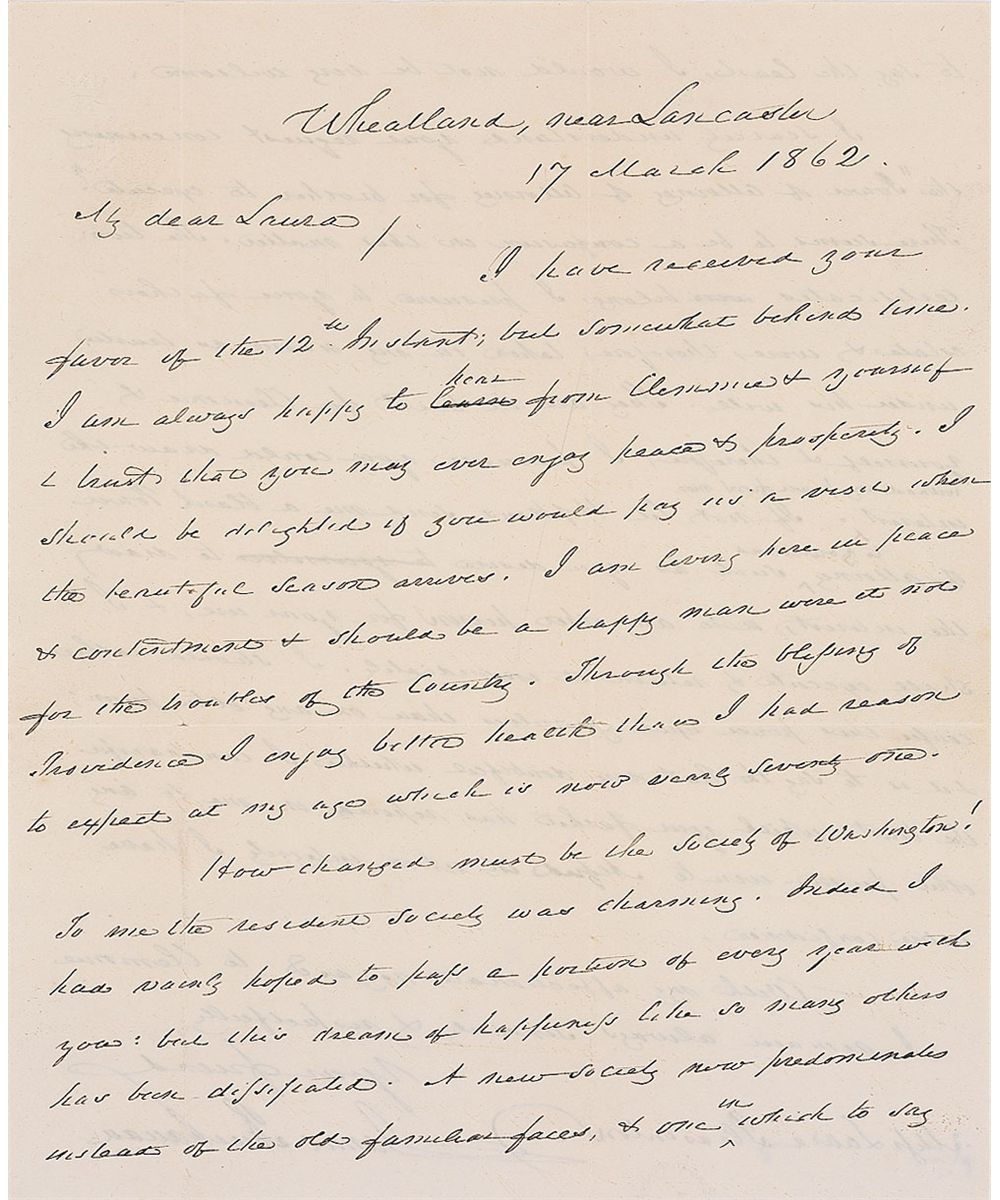 Wheatland, near Lancaster
17 March 1862.
My dear Laura /
I have received your
favor of the 12th Instant; but somewhat behind time.
hear
I am always happy to learn from Clemmie & yourself
& trust that you may ever enjoy peace & prosperity. I
should be delighted if you would pay us a visit when
the beautiful season arrives. I am living here in peace
& contentment & should be a happy man were it not
for the troubles of the Country. Through the blessing of
Providence I enjoy better health than I had reason
to expect at my age which is now nearly seventy one.
How changed must be the society of Washington!
To me the resident society was charming. Indeed I
had vainly hoped to pass a portion of every year with
you: but this dream of happiness like so many others
has been dissipated. A new society now predominates
in
instead of the old familiar faces, & one ^ which to say